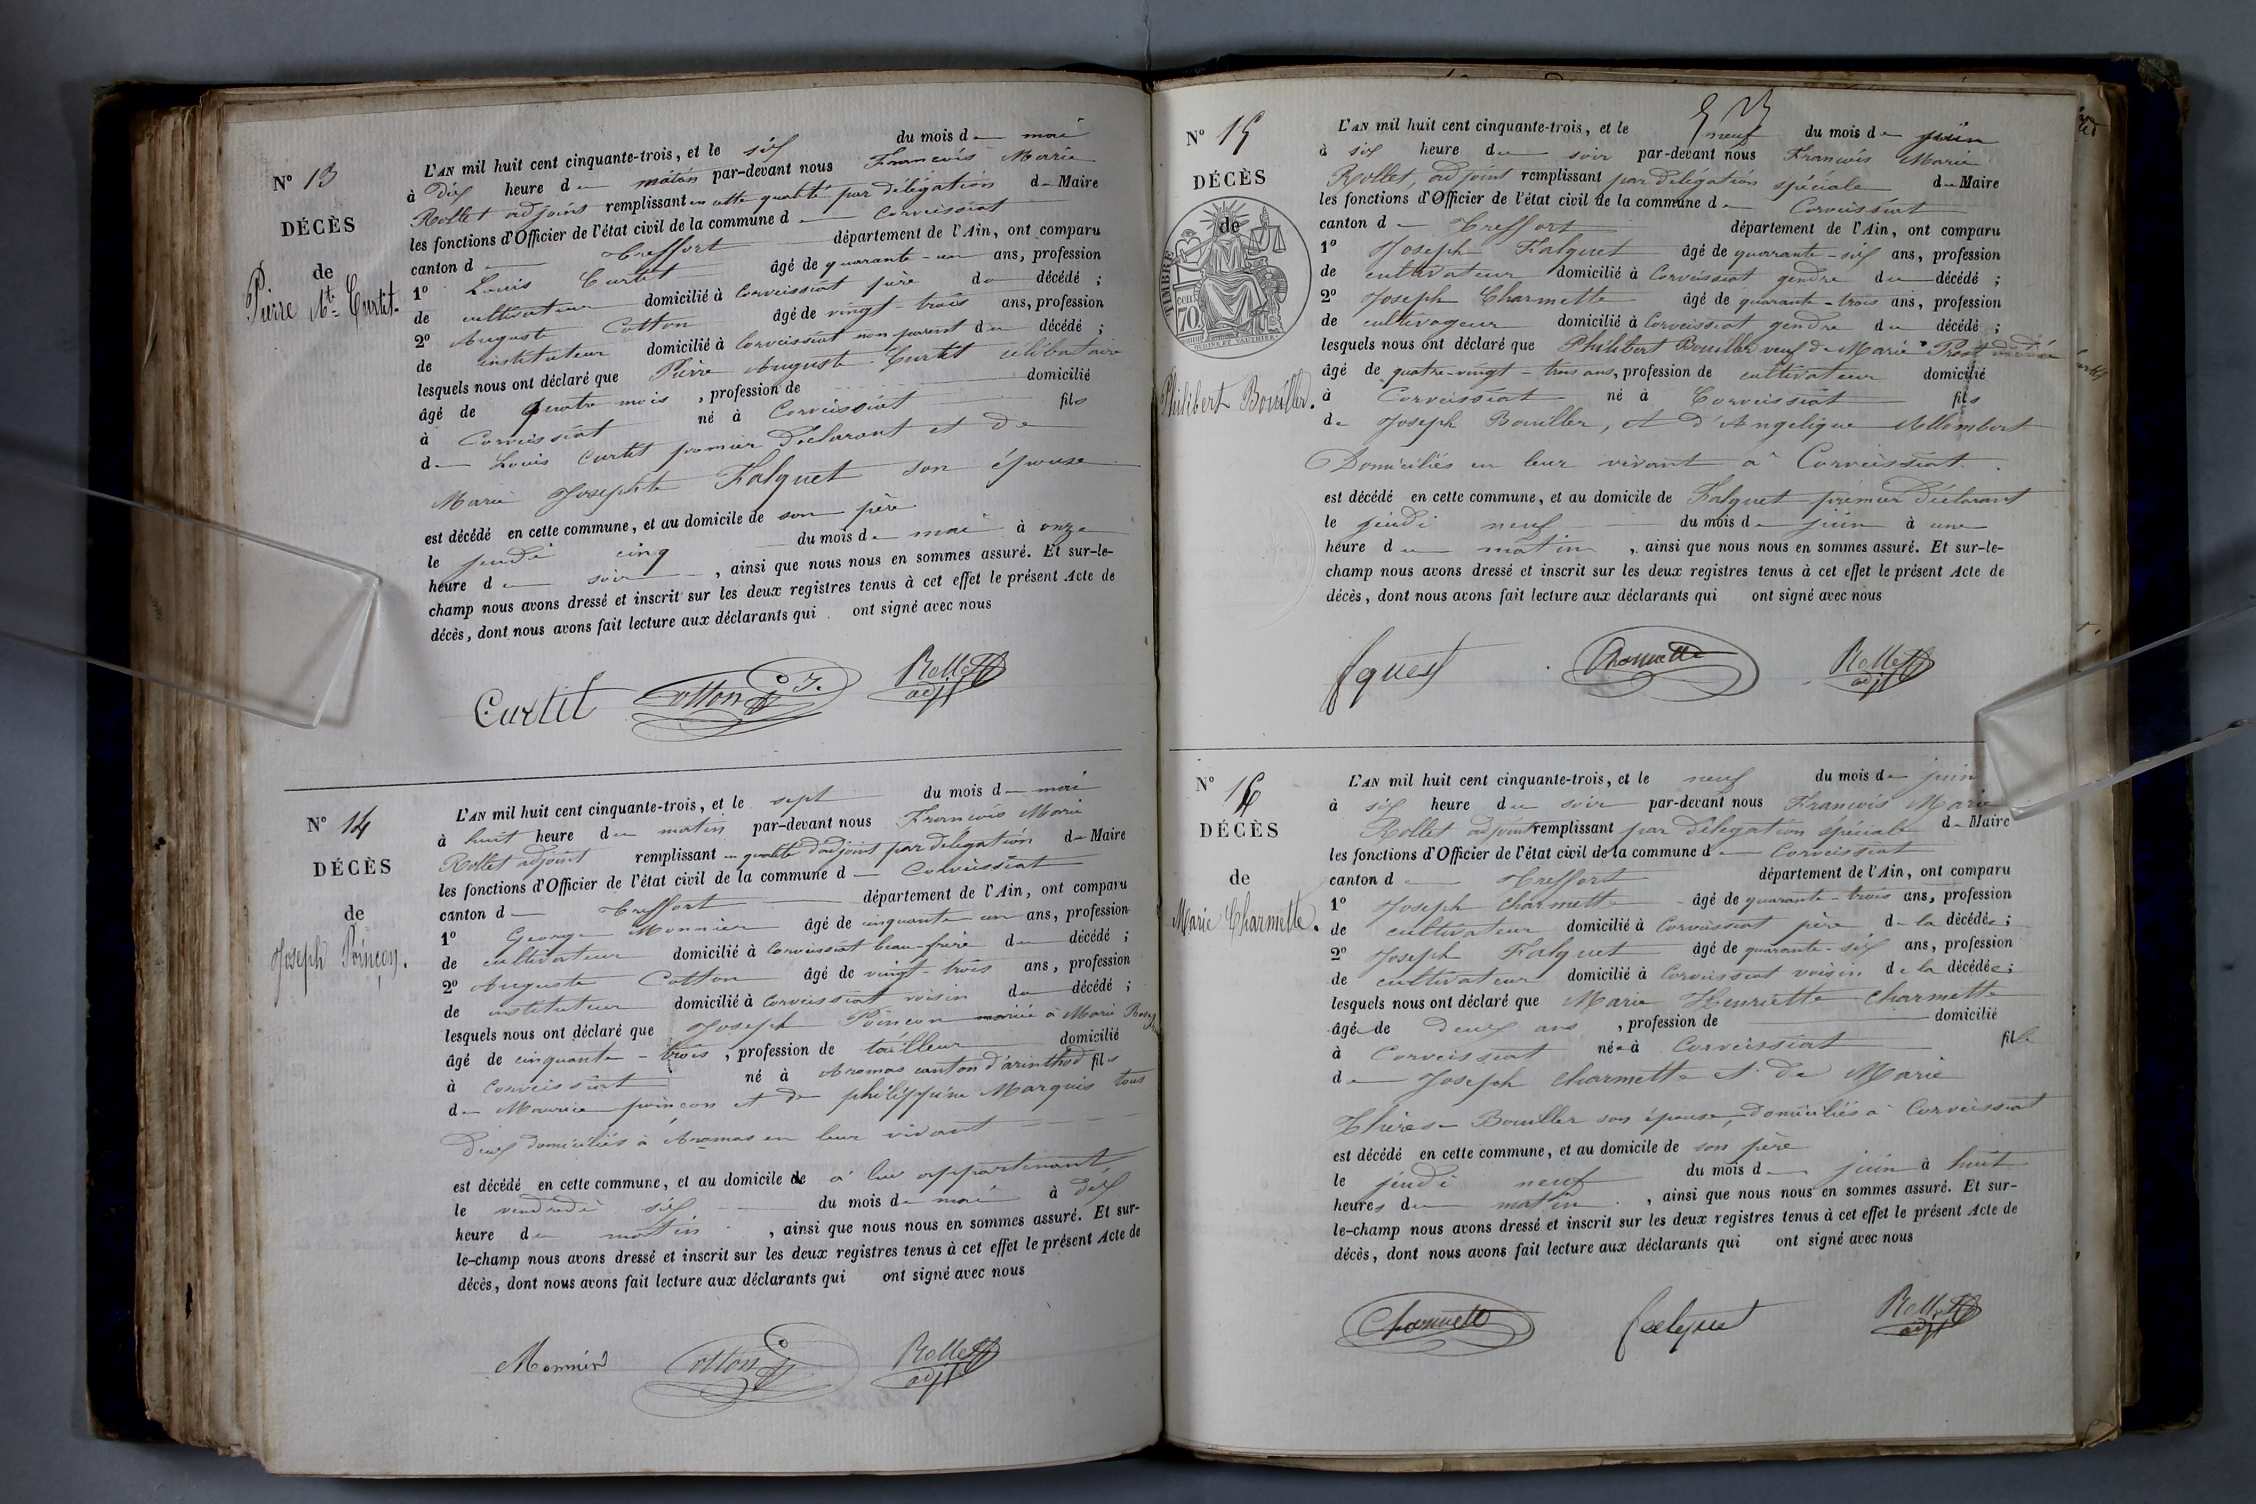 N° 13
DÉCÈS
de
Pierre Ate Curtit.
L'AN mil huit cent cinquante-trois, et le six du mois de mai
à dix heure du matin par-devant nous François Marie
Rollet adjoint remplissant en cette qualité par délégation du Maire
les fonctions d'Officier de l'état civil de la commune de Corveissiat
canton de Treffort département de l'Ain, ont comparu
1° Louis Curtit âgé de quarante-un ans, profession
de cultivateur domicilié à Corveissiat père du décédé ;
2° Auguste Cotton âgé de vingt-trois ans, profession
de instituteur domicilié à Corveissiat non parent du décédé ;
lesquels nous ont déclaré que Pierre Auguste Curtit célibataire
âgé de quatre mois, profession de domicilié
à Corveissiat né à Corveissiat fils
de Louis Curtit premier déclarant et de
Marie Josephte Falquet son épouse
est décédé en cette commune, et au domicile de son père
le jeudi cinq du mois de mai à onze
heure de soir, ainsi que nous nous en sommes assuré. Et sur-le-
champ nous avons dressé et inscrit sur les deux registres tenus à cet effet le présent Acte de
décès, dont nous avons fait lecture aux déclarants qui ont signé avec nous
Curtit Cotton Rollet adjt
N° 14
DÉCÈS
de
Joseph Poinçon.
L'AN mil huit cent cinquante-trois, et le sept du mois de mai
à huit heure du matin par-devant nous François Marie
Rollet adjoint remplissant en qualité d'adjoint par délégation du Maire
les fonctions d'Officier de l'état civil de la commune de Corveissiat
canton de Treffort département de l'Ain, ont comparu
1° George Monnier âgé de cinquante un ans, profession
de cultivateur domicilié à Corveissiat beau-frère du décédé ;
2° Auguste Cotton âgé de vingt-trois ans, profession
de instituteur domicilié à Corveissiat voisin du décédé ;
lesquels nous ont déclaré que Joseph Poinçon marié à Marie Rosy
âgé de cinquante-trois, profession de tailleur domicilié
à Corveissiat né à Aromas canton d'arinthod fils
de Maurice poinçon et de philippine Marquis tous
Deux domiciliés à Aromas en leur vivant
est décédé en cette commune, et au domicile de à lui appartenant
le vendredi six du mois de mai à dix
heure du matin, ainsi que nous nous en sommes assuré. Et sur-
le-champ nous avons dressé et inscrit sur les deux registres tenus à cet effet le présent Acte de
décès, dont nous avons fait lecture aux déclarants qui ont signé avec nous
Monnier Cotton Rollet adjt
N° 15
DÉCÈS
de
TIMBRE
cent 70
Philibert Bouiller.
L'AN mil huit cent cinquante-trois, et le neuf du mois de juin
à six heure du soir par-devant nous François Marie
Rollet, adjoint remplissant par délégation spéciale du Maire
les fonctions d'Officier de l'état civil de la commune de Corveissiat
canton de Treffort département de l'Ain, ont comparu
1° Joseph Falquet âgé de quarante-six ans, profession
de cultivateur domicilié à Corveissiat gendre du décédé ;
2° Joseph Charmette âgé de quarante-trois ans, profession
de cultivateur domicilié à Corveissiat gendre du décédé ;
lesquels nous ont déclaré que Philibert Bouiller veuf de Marie Prost
âgé de quatre-vingt-trois ans, profession de cultivateur domicilié
à Corveissiat né à Corveissiat fils
de Joseph Bouiller, et d'Angelique Allombert
Domiciliés en leur vivant à Corveissiat.
est décédé en cette commune, et au domicile de Falquet premier Déclarant
le jeudi neuf du mois de juin à une
heure du matin, ainsi que nous nous en sommes assuré. Et sur-le-
champ nous avons dressé et inscrit sur les deux registres tenus à cet effet le présent Acte de
décès, dont nous avons fait lecture aux déclarants qui ont signé avec nous
fquet Charmette Rollet adjt
N° 16
DÉCÈS
de
Marie Charmette.
L'AN mil huit cent cinquante-trois, et le neuf du mois de juin
à six heure du soir par-devant nous François Marie
Rollet adjoint remplissant par délégation spéciale du Maire
les fonctions d'Officier de l'état civil de la commune de Corveissiat
canton de Treffort département de l'Ain, ont comparu
1° Joseph Charmette âgé de quarante-trois ans, profession
de cultivateur domicilié à Corveissiat père de la décédée ;
2° Joseph Falquet âgé de quarante-six ans, profession
de cultivateur domicilié à Corveissiat voisin de la décédée ;
lesquels nous ont déclaré que Marie Henriette Charmette
âgée de deux ans, profession de domicilié
à Corveissiat née à Corveissiat fille
de Joseph Charmette et de Marie
Thérèse Bouiller son épouse, domiciliés à Corveissiat
est décédé en cette commune, et au domicile de son père
le jeudi neuf du mois de juin à huit
heures du matin, ainsi que nous nous en sommes assuré. Et sur-
le-champ nous avons dressé et inscrit sur les deux registres tenus à cet effet le présent Acte de
décès, dont nous avons fait lecture aux déclarants qui ont signé avec nous
Charmette falquet Rollet adjt